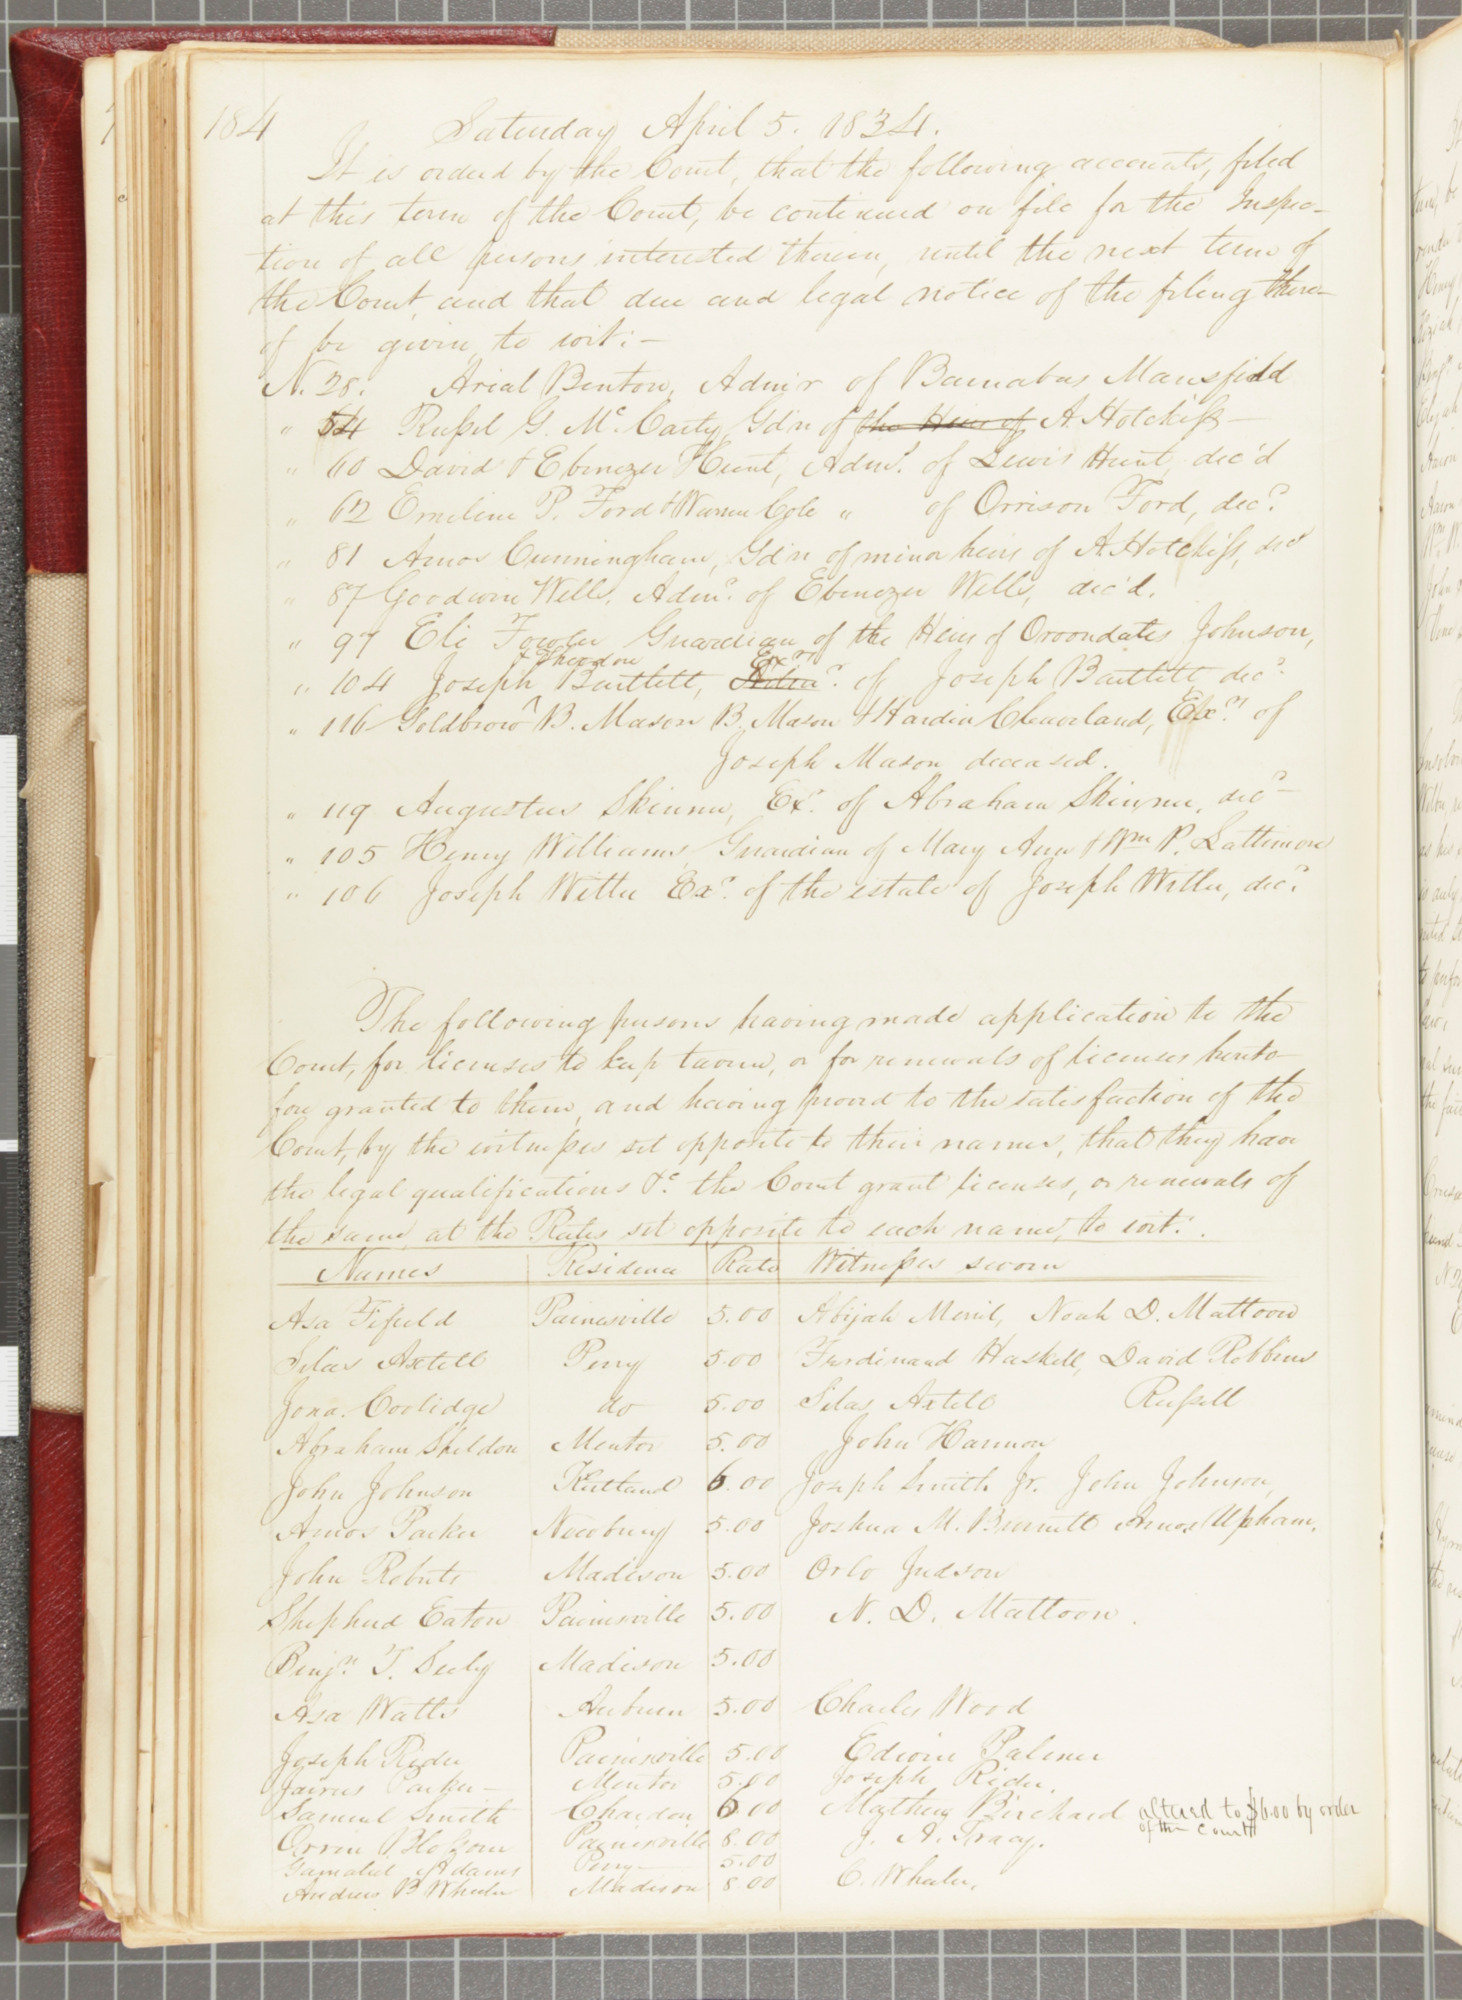 184
Saturday April 5. 1834.
It is ordered by the Court, that the following accounts, filed
at this term of the Court, be continued on file for the Inspec-
tion of all persons interested therein, until the next term of
the Court, and that due and legal notice of the filing there-
of be given, to wit:-
N. 28. Arial Benton, Admr of Barnabas Mansfield
" 54 Russel G. Mc Carty, Gd'n of the Heirs of A. Hotchkiss-
" 60 David & Ebenezer Hunt, Admr. of Lewis Hunt, dec'd
" 62 Emeline P. Ford & Warren Cole " of Orrison Ford, decd.
" 81 Amos Cunningham, Gd'n of minor heirs of A. Hotchkiss, decd
" 87 Goodwin Wells, Admr. of Ebenezer Wells, dec'd.
" 97 Eli Fowler Guardian of the Heirs of Oroondates Johnson,
& Theodore Exrs
" 104 Joseph Bartlett, of Joseph Bartlett, decd.
" 116 B. Mason B. Mason & Hardin Cleaveland, Exrs. of
Joseph Mason deceased.
" 119 Augustus Skinner, Exr. of Abraham Skinner, decd-
" 105 Henry Williams, Guardian of Mary Ann & Wm P. Lattimore
" 106 Joseph Witter Exr. of the estate of Joseph Witter, decd.
The following persons having made application to the
Court, for licenses to keep tavern, or for renewals of licenses hereto-
fore granted to them, and having proved to the satisfaction of the
Court, by the witnesses set opposite to their names, that they have
the legal qualifications &c. the Court grant licenses, or renewals of
the same, at the Rates set opposite to each name, to wit:
Names Residence Rate Witnesses sworn
Asa Fifield Painesville 5.00 Abijah Merril, Noah D. Mattoon
Silas Axtell Perry 5.00 Ferdinand Haskell, David Robbins
Jona. Coolidge do 5.00 Silas Axtell Russell
Abraham Sheldon Mentor 5.00 John Harmon
John Johnson Kirtland 6.00 Joseph Smith Jr. John Johnson,
Amos Parker Newbury 5.00 Joshua M. Burnett Amos Upham.
John Roberts Madison 5.00 Orlo Judson
Shepherd Eaton Painesville 5.00 N. D. Mattoon.
Benjn. T. Seely Madison 5.00
Asa Watts Auburn 5.00 Charles Wood
Joseph Rider Painesville 5.00 Edwin Palmer
Jairus Parker- Mentor 5.00 Joseph Rider.
Samuel Smith Chardon 6.00 Mathew Birchard altered to $6.00 by order
of the Court
Orrin Blossom Painesville 8.00 J. A. Tracy.
Gamaliel Adams Perry- 5.00
Andrew B Wheeler Madison 8 00 C. Wheeler.